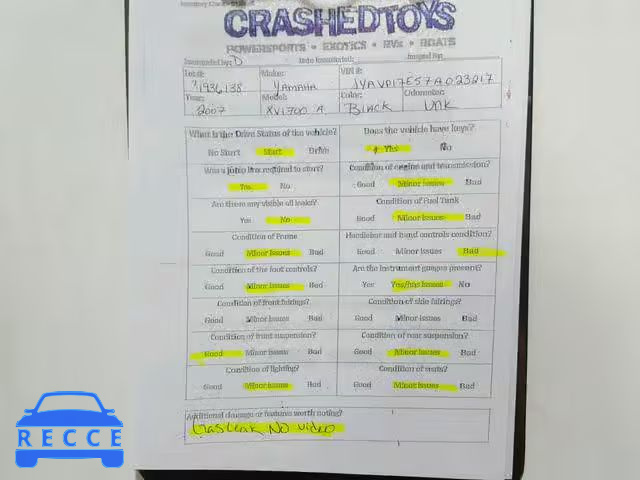 CRASHEDTOYS
POWERSPORTS • EXOTICS • RVs • BOATS
Lot#: Make: VIN #:
31936138 YAMAHA JYAVP17E57A023217
Year: Model: Color: Odometer:
2007 XV1700 A Black UNK
What is the Drive Status of the vehicle? Does the vehicle have keys?
No Start Start Drive Yes No
Was a jump box required to start? Condition of engine and transmission?
Yes No Good Minor Issues Bad
Are there any visible oil leaks? Condition of Fuel Tank
Yes No Good Minor Issues Bad
Condition of Frame Handlebar and hand controls condition?
Good Minor Issues Bad Good Minor Issues Bad
Condition of the foot controls? Are the instrument gauges present?
Good Minor Issues Bad Yes Yes/has Issues No
Condition of front fairings? Condition of side fairings?
Good Minor Issues Bad Good Minor Issues Bad
Condition of front suspension? Condition of rear suspension?
Good Minor Issues Bad Good Minor Issues Bad
Condition of lighting? Condition of seats?
Good Minor Issues Bad Good Minor Issues Bad
Additional damage or features worth noting?
Gas Leak No video
RECCE